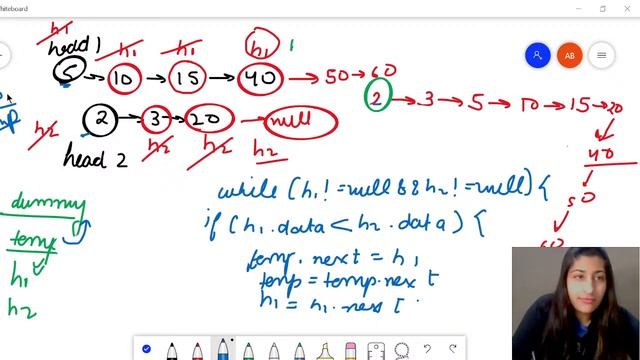 Whiteboard
h1
head 1 h1 h1 h1
5 → 10 → 15 → 40 → 50 → 60
2 → 3 → 5 → 10 → 15 → 20
2 → 3 → 20 → null
h2 h2 h2 h2
head 2
40
50
60
dummy
temp
h1
h2
while (h1 != null && h2 != null) {
if (h1.data < h2.data) {
temp.next = h1
temp = temp.next
h1 = h1.next
AB